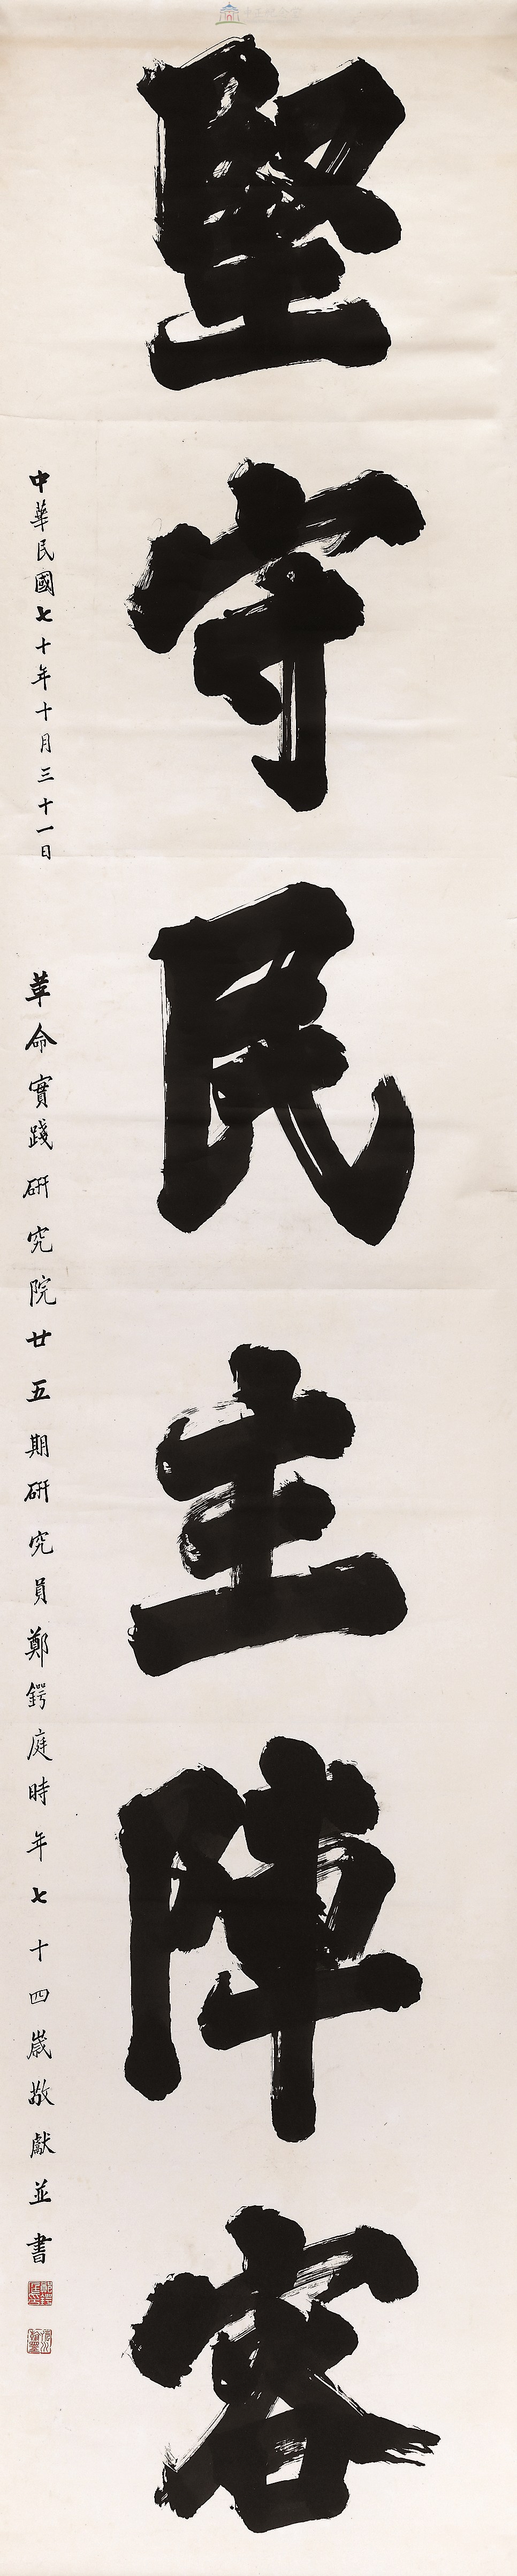 堅守民主陣容
中華民國七十年十月三十一日 革命實踐研究院廿五期研究員鄭鍔庭時年七十四歲敬獻並書